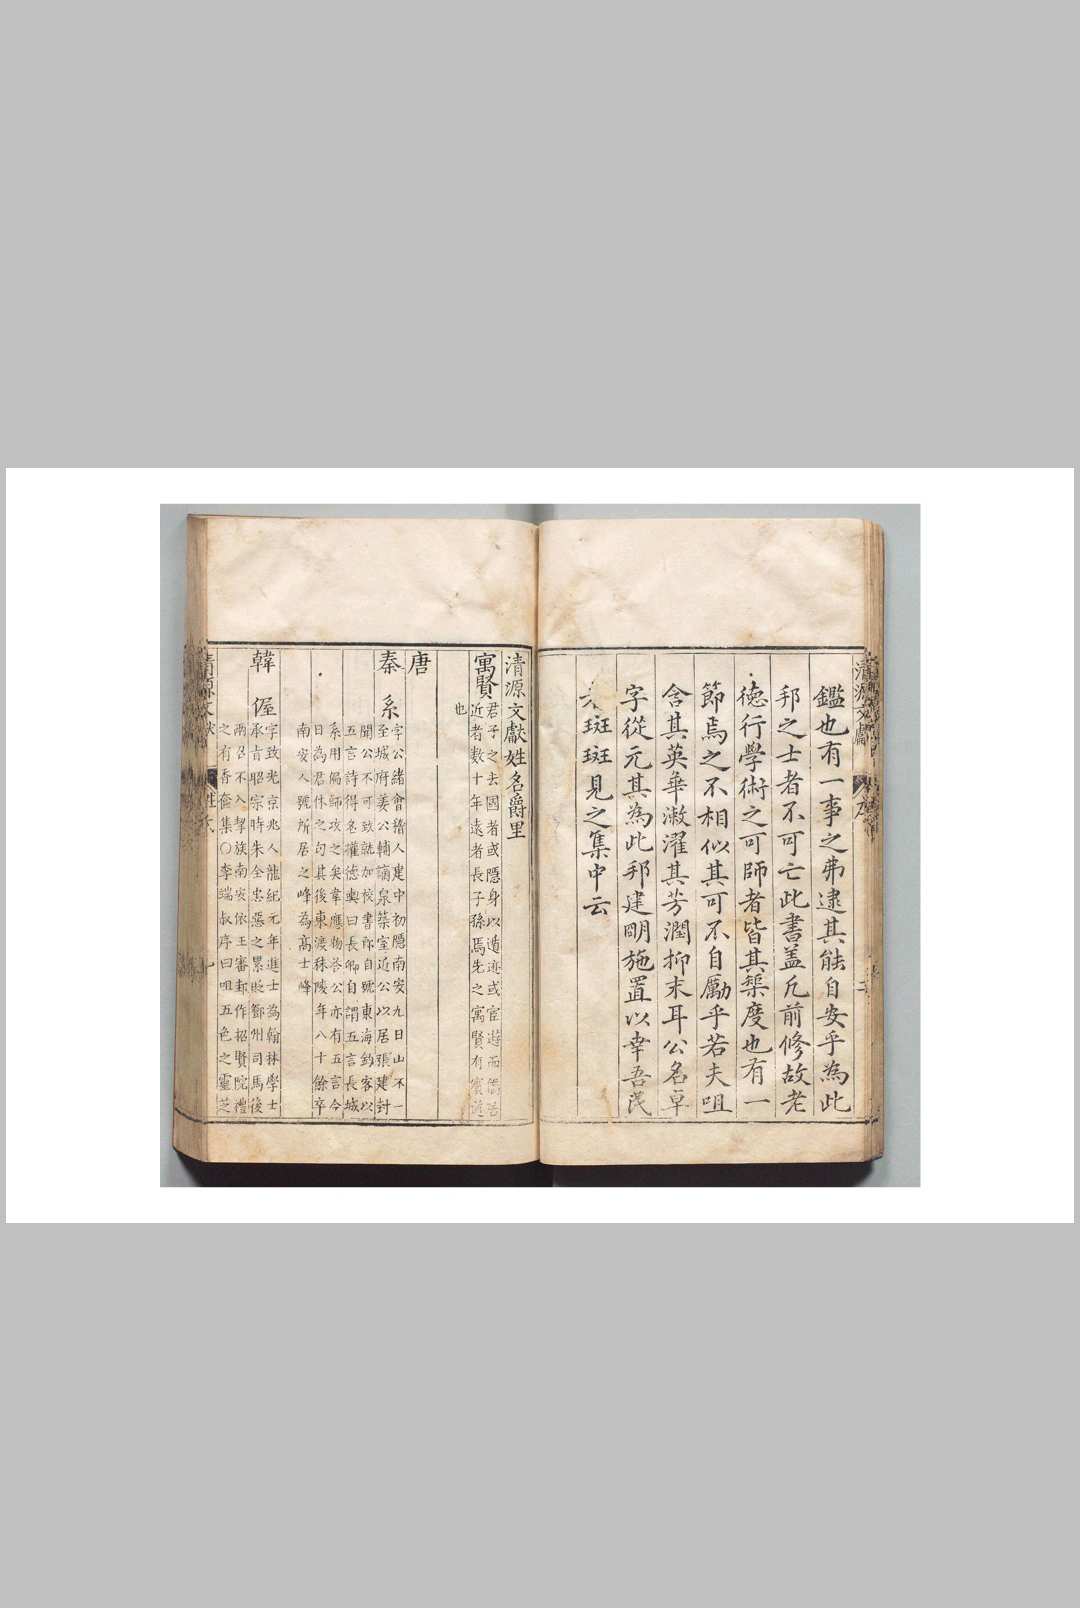 鑑也有一事之弗逮其能自安乎為此
邦之士者不可亡此書盖凡前修故老
德行學術之可師者皆其榘度也有一
節焉之不相似其可不自勵乎若夫咀
含其英華漱濯其芳潤抑末耳公名卓
字從元其為此邦建明施置以幸吾民
者班班見之集中云
清源文獻姓名爵里
寓賢
君子之去國者或隱身以遺迹或宦遊而僑居
近者數十年遠者長子孫焉先之寓賢有賓道
也
唐
秦系
字公緒會稽人建中初隱南安九日山不一
至城府姜公輔謫泉築室近公以居張建封
聞公不可致就加校書郎自號東海釣客以
五言詩得名權德輿曰長卿自謂五言長城
系用偏師攻之矣韋應物荅公亦有五言今
日為君休之句其後東渡秣陵年八十餘卒
南安人號所居之峰為高士峰
韓偓
字致光京兆人龍紀元年進士為翰林學士
承旨昭宗時朱全忠惡之累貶鄧州司馬後
兩召不入挈族南安依王審邽作招賢院禮
之有香奩集○李端叔序曰咀五色之靈芝
清源文獻